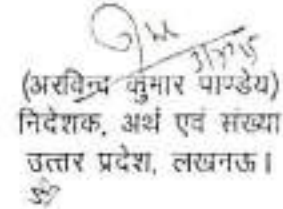 (अरविन्द कुमार पाण्डेय)
निदेशक, अर्थ एवं संख्या
उत्तर प्रदेश, लखनऊ।